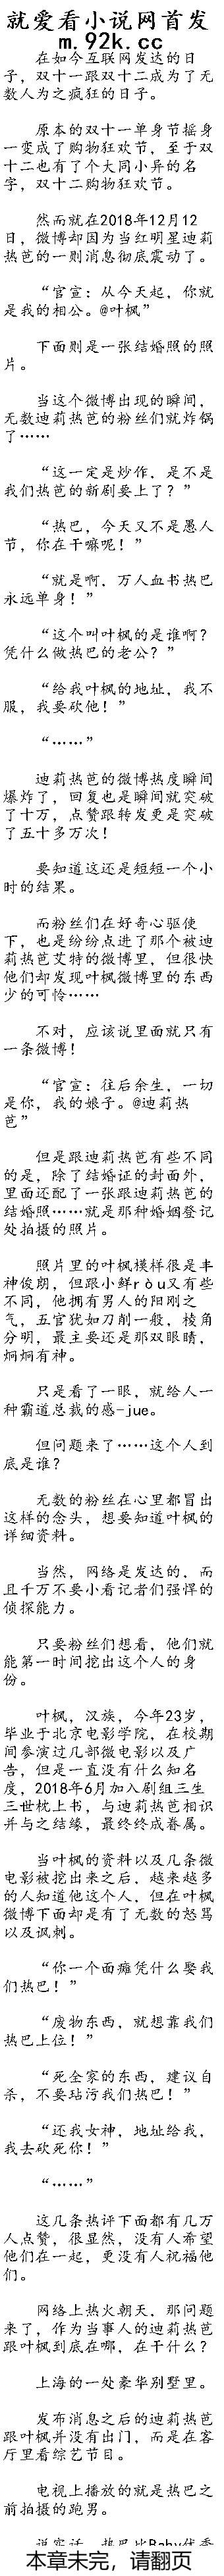 就爱看小说网首发
m.92k.cc
在如今互联网发达的日
子，双十一跟双十二成为了无
数人为之疯狂的日子。
原本的双十一单身节摇身
一变成了购物狂欢节，至于双
十二也有了个大同小异的名
字，双十二购物狂欢节。
然而就在2018年12月12
日，微博却因为当红明星迪莉
热芭的一则消息彻底震动了。
“官宣：从今天起，你就
是我的相公。@叶枫”
下面则是一张结婚照的照
片。
当这个微博出现的瞬间，
无数迪莉热芭的粉丝们就炸锅
了……
“这一定是炒作，是不是
我们热芭的新剧要上了？”
“热巴，今天又不是愚人
节，你在干嘛呢！”
“就是啊，万人血书热巴
永远单身！”
“这个叫叶枫的是谁啊？
凭什么做热巴的老公？”
“给我叶枫的地址，我不
服，我要砍他！”
“……”
迪莉热芭的微博热度瞬间
爆炸了，回复也是瞬间就突破
了十万，点赞跟转发更是突破
了五十多万次！
要知道这还是短短一个小
时的结果。
而粉丝们在好奇心驱使
下，也是纷纷点进了那个被迪
莉热芭艾特的微博里，但很快
他们却发现叶枫微博里的东西
少的可怜……
不对，应该说里面就只有
一条微博！
“官宣：往后余生，一切
是你，我的娘子。@迪莉热
芭”
但是跟迪莉热芭有些不同
的是，除了结婚证的封面外，
里面还配了一张跟迪莉热芭的
结婚照……就是那种婚姻登记
处拍摄的照片。
照片里的叶枫模样很是丰
神俊朗，但跟小鲜ròu又有些
不同，他拥有男人的阳刚之
气，五官犹如刀削一般，棱角
分明，最主要还是那双眼睛，
炯炯有神。
只是看了一眼，就给人一
种霸道总裁的感-jue。
但问题来了……这个人到
底是谁？
无数的粉丝在心里都冒出
这样的念头，想要知道叶枫的
详细资料。
当然，网络是发达的，而
且千万不要小看记者们强悍的
侦探能力。
只要粉丝们想看，他们就
能第一时间挖出这个人的身
份。
叶枫，汉族，今年23岁，
毕业于北京电影学院，在校期
间参演过几部微电影以及广
告，但是一直没有什么知名
度，2018年6月加入剧组三生
三世枕上书，与迪莉热芭相识
并与之结缘，最终终成眷属。
当叶枫的资料以及几条微
电影被挖出来之后，越来越多
的人知道他这个人，但在叶枫
微博下面却是有了无数的怒骂
以及讽刺。
“你一个面瘫凭什么娶我
们热芭！”
“废物东西，就想靠我们
热芭上位！”
“死全家的东西，建议自
杀，不要玷污我们热巴！”
“还我女神，地址给我，
我去砍死你！”
“……”
这几条热评下面都有几万
人点赞，很显然，没有人希望
他们在一起，更没有人祝福他
们。
网络上热火朝天，那问题
来了，作为当事人的迪莉热芭
跟叶枫到底在哪，在干什么？
上海的一处豪华别墅里。
发布消息之后的迪莉热芭
跟叶枫并没有出门，而是在客
厅里看综艺节目。
电视上播放的就是热巴之
前拍摄的跑男。
说实话，热巴比Baby优秀
本章未完，请翻页